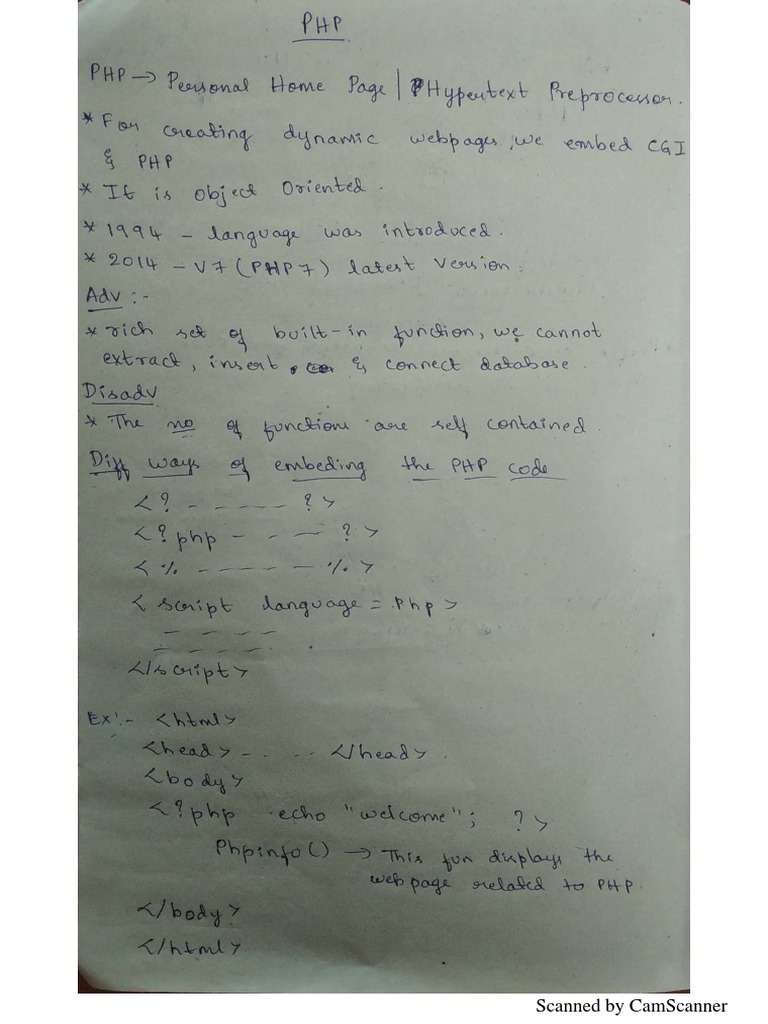 PHP
PHP → Personal Home Page | PHypertext Preprocessor.
* For creating dynamic webpages, we embed CGI
& PHP
* It is object Oriented.
* 1994 - language was introduced.
* 2014 - V7 (PHP7) latest version.
Adv :-
* rich set of built-in function, we cannot
extract, insert, & connect database.
Disadv
* The no of functions are self contained.
Diff ways of embeding the PHP code
<? - - - - - ?>
<?php - - - ?>
<% - - - - - %>
< script language = Php>
- - - -
- - - - -
</script>
Ex:- <html>
<head> - . - - </head>
<body>
<?php echo "welcome"; ?>
Phpinfo() → This fun displays the
webpage related to PHP.
</body>
</html>
Scanned by CamScanner